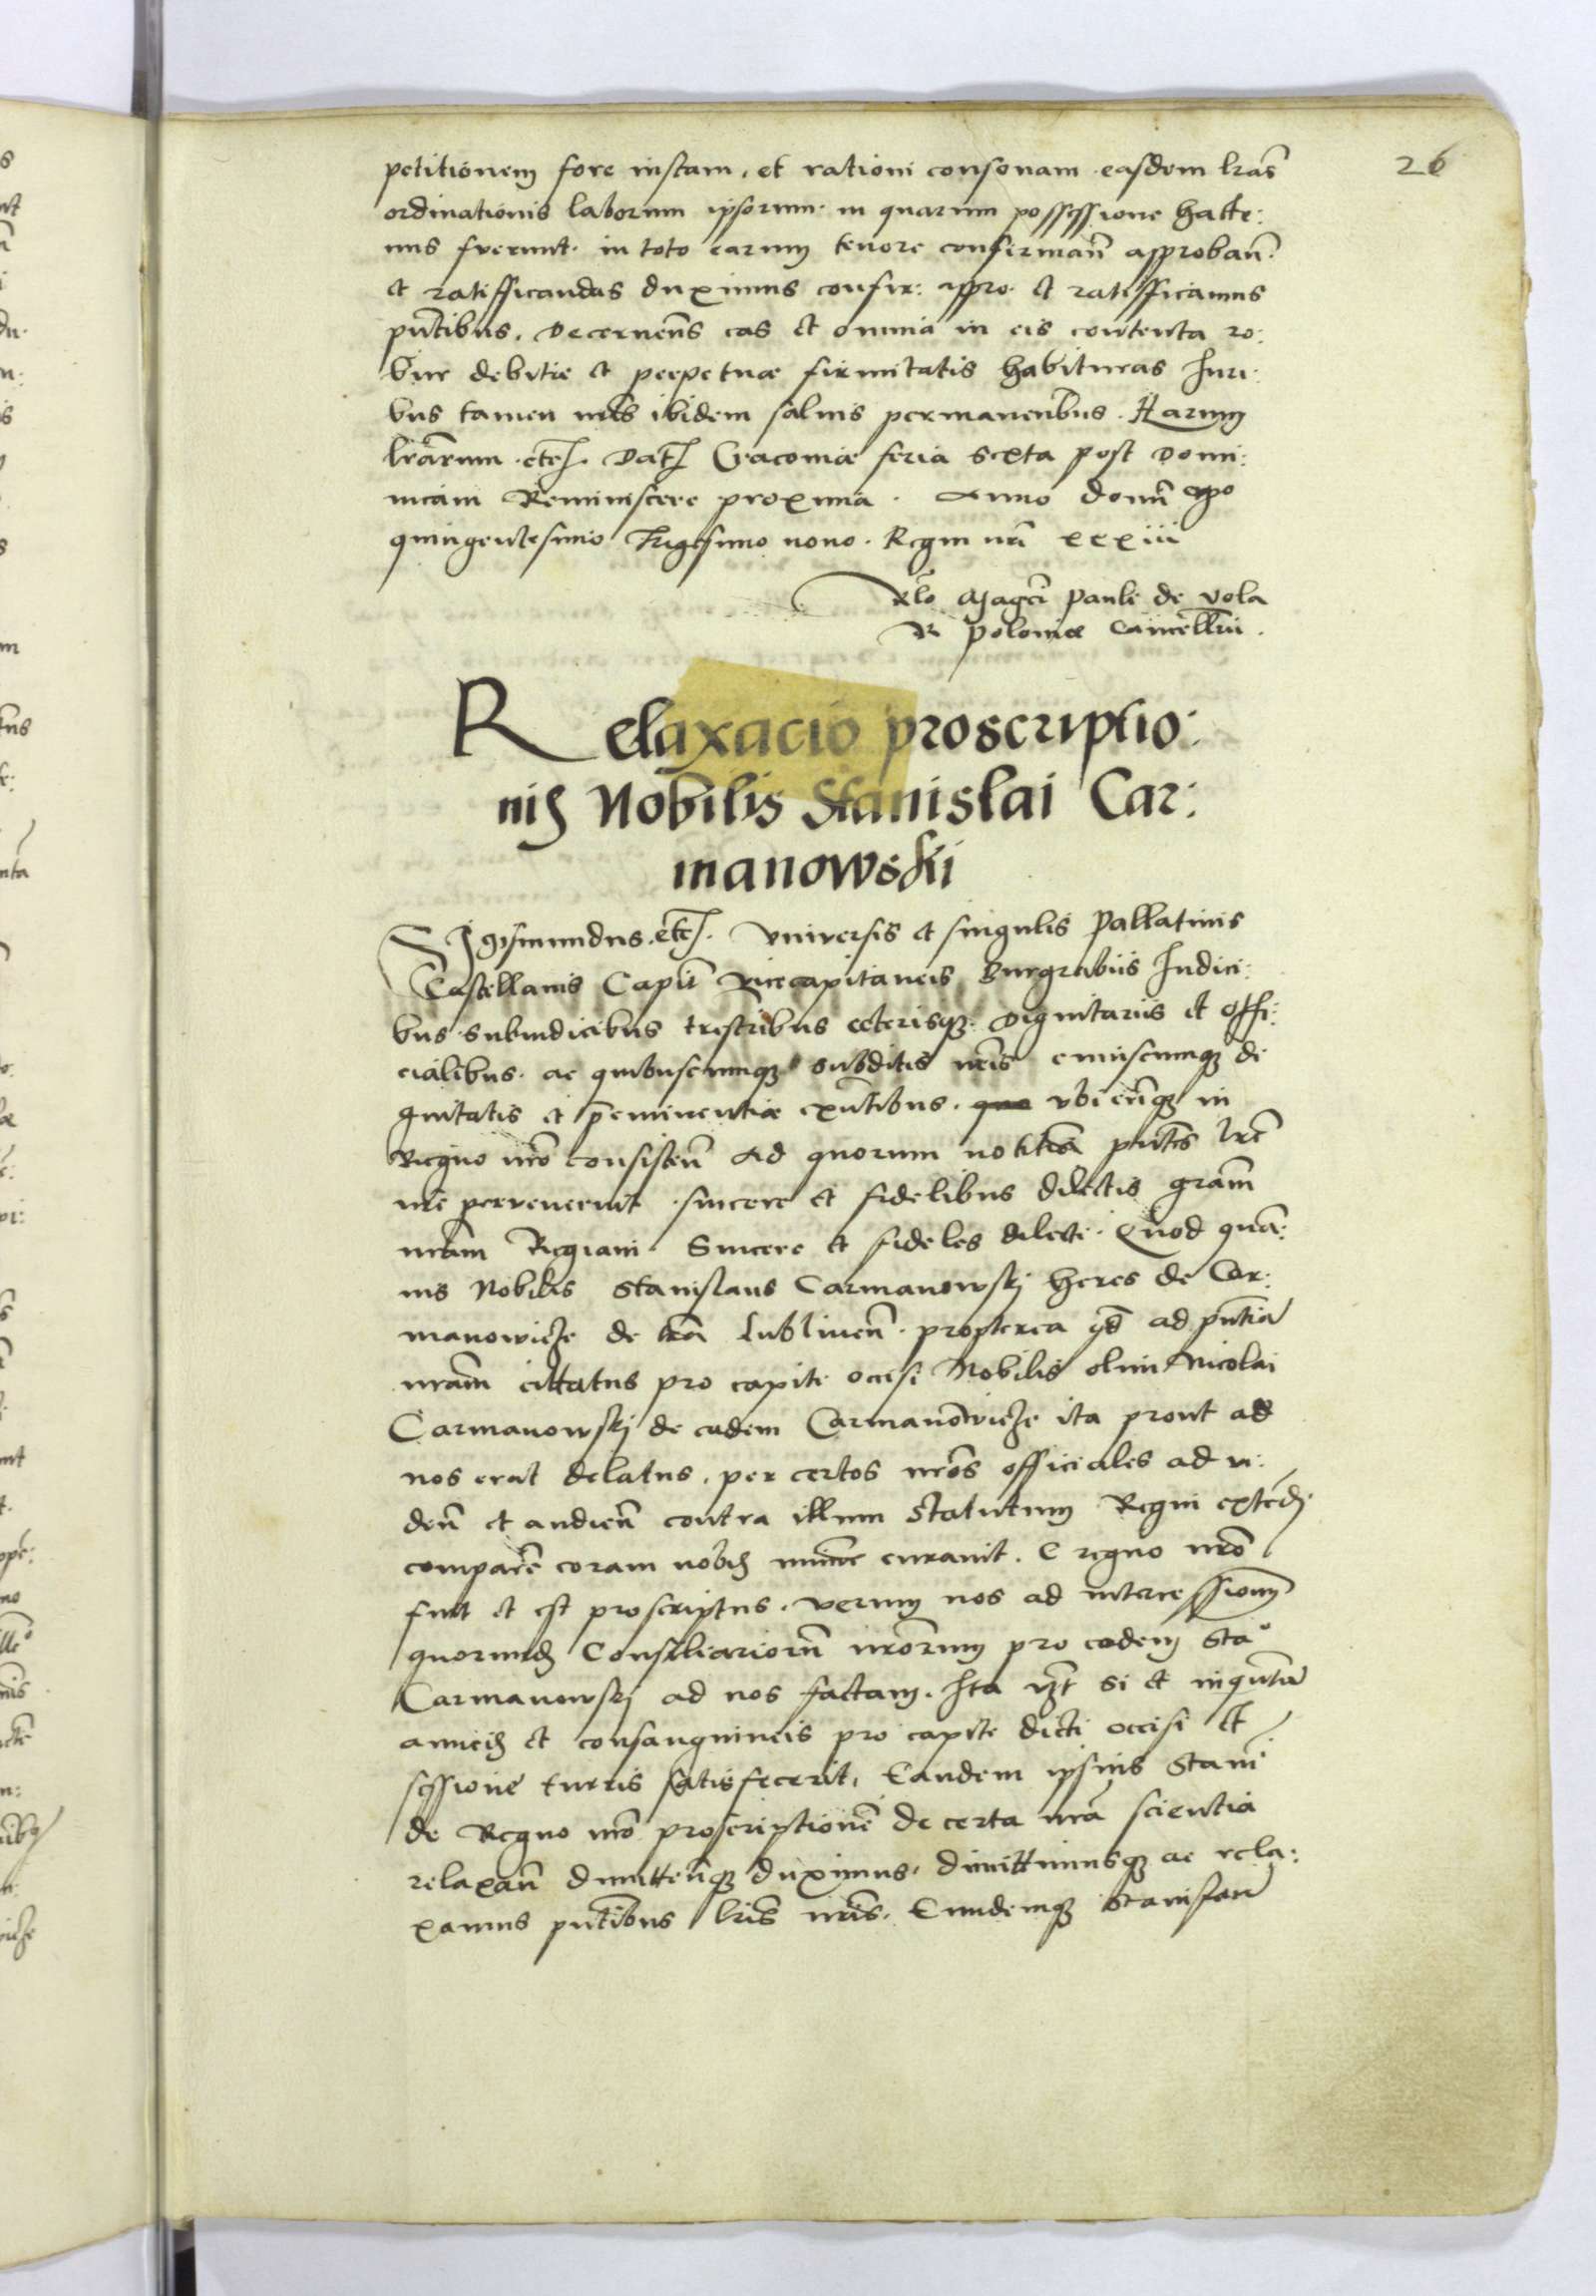 26
petitionem fore iustam, et rationi consonam easdem lras̃
ordinationis laborum ipsorum in quarum possessione hacte:
nus fuerunt in toto earum tenore confirman̄ approban̄
et ratifficandas duximus confir: appro et ratifficamus
pn̄tibus. Decernen̄s eas et omnia in eis contenta ro:
bur debitæ et perpetuæ firmitatis habituras Iuri:
bus tamen nr̄is ibidem saluis permanen̄bus. Harum
lrārum etc. Dat Cracouiæ feria sexta post Domi:
nicam Reminiscere proxima. Anno domī Mo
quingentesimo Trigesimo nono. Regni nrī xxxiii
Rlō Magcī Pauli de Vola
R Poloniæ Cancellrīi.
Relaxacio proscriptio:
nis Nobilis Stanislai Car:
manowski
Sigismundus. etc. Vniuersis et singulis Pallatinis
Castellanis Capit̄ Vicecapitaneis Burgrabiis Iudici:
bus Subiudicibus trēstribus ceterisqȝ Dignitariis et Offi:
cialibus ac quibuscunqȝ subditis nrīs cuiuscunqȝ di
gnitatis et pēminentiæ exn̄tibus. vbicūnqȝ in
Regno nrō consisten̄ Ad quorum notitiā pn̄tes lrē
nrē peruenerint sincere et fidelibus dilectis grām
nrām Regiam. Sincere et fideles dilecti. Quod quā:
uis Nobilis Stanislaus Carmanowskj heres de Car:
manowicze de trā Lublinen̄ propterea qd̄ ad pn̄tiā
nrām cittatus pro capite occisi Nobilis olim Nicolai
Carmanowskj de eadem Carmanowicze ita prout ad
nos erat delatus, per certos nrōs officiales ad vi:
den̄ et audien̄ contra illum Statutum Regni extēdi
comparēe coram nobis curauit. E regno nrō
fuit et est proscriptus. Verum nos ad intercessionem
quorumdā Consiliariorū nrōrum pro eodem Stao
Carmanowskj ad nos factam. Ita vzt̄ si et inqūtū
amicis et consanguineis pro capite dicti occisi et
sessione turris satisfecerit, Eandem ipsius Stani
de Regno nrō proscriptionē de certa nrā scientia
relaxan̄ dimitten̄qȝ duximus, dimittimusqȝ ac rela:
xamus pn̄tibus lrīs nrīs. Eundemqȝ Stanislaū